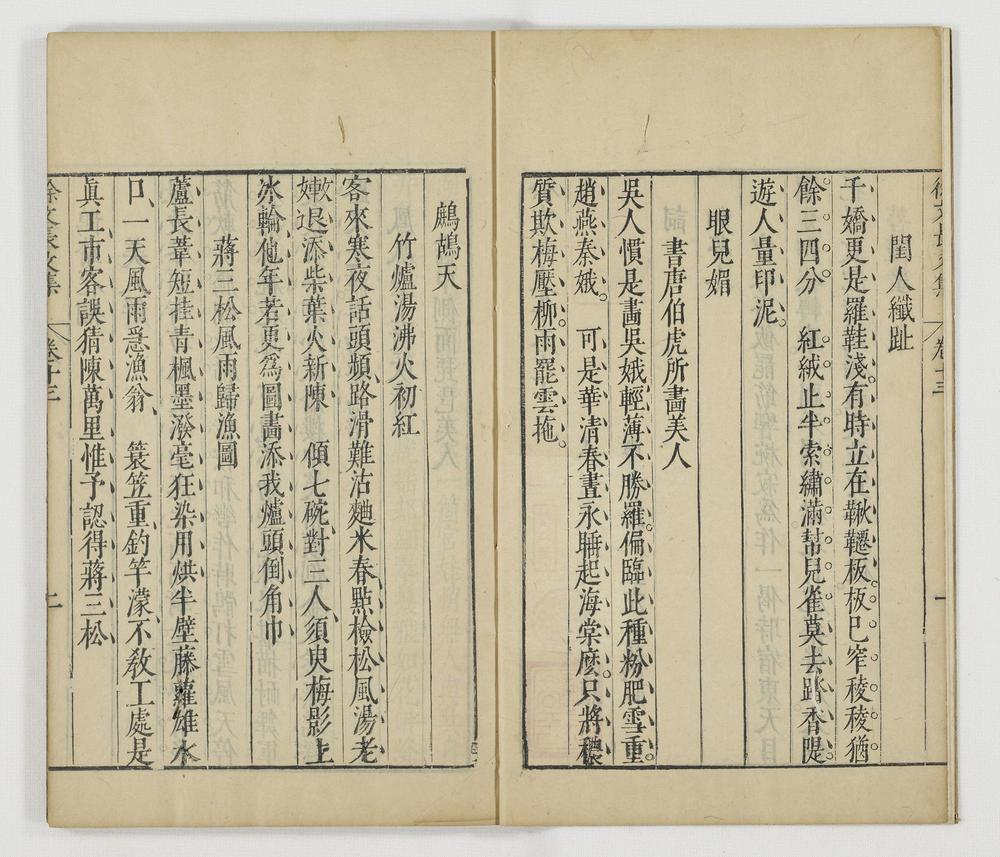 徐文長文集 卷十三 一
閨人纖趾
千嬌更是羅鞋淺有時立在鞦韆板板巳窄稜稜猶
餘三四分 紅絨止半索繡滿幇兒雀莫去踏香隄
遊人量印泥
眼兒媚
書唐伯虎所畫美人
吳人慣是畫吳娥輕薄不勝羅偏臨此種粉肥雪重
趙燕秦娥 可是華清春晝永睡起海棠麽只將穠
質欺梅壓柳雨罷雲拖
鷓鴣天
竹爐湯沸火初紅
客來寒夜話頭頻路滑難沽麯米春點檢松風湯老
嫩退添柴葉火新陳 傾七碗對三人須臾梅影上
冰輪他年若更爲圖畫添我爐頭倒角巾
蔣三松風雨歸漁圖
蘆長葦短挂青楓墨潑毫狂染用烘半壁藤蘿雄水
口一天風雨急漁翁 簑笠重釣竿濛不敎工處是
眞工市客誤猜陳萬里惟予認得蔣三松
徐文長文集 卷十三 二